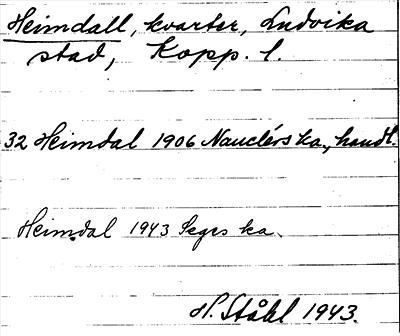 Heimdall, kvarter, Ludvika
stad, Kopp. l.
32 Heimdal 1906 Nauclérs ka., handl.
Heimdal 1943 Segrs ka.
H. Ståhl 1943.